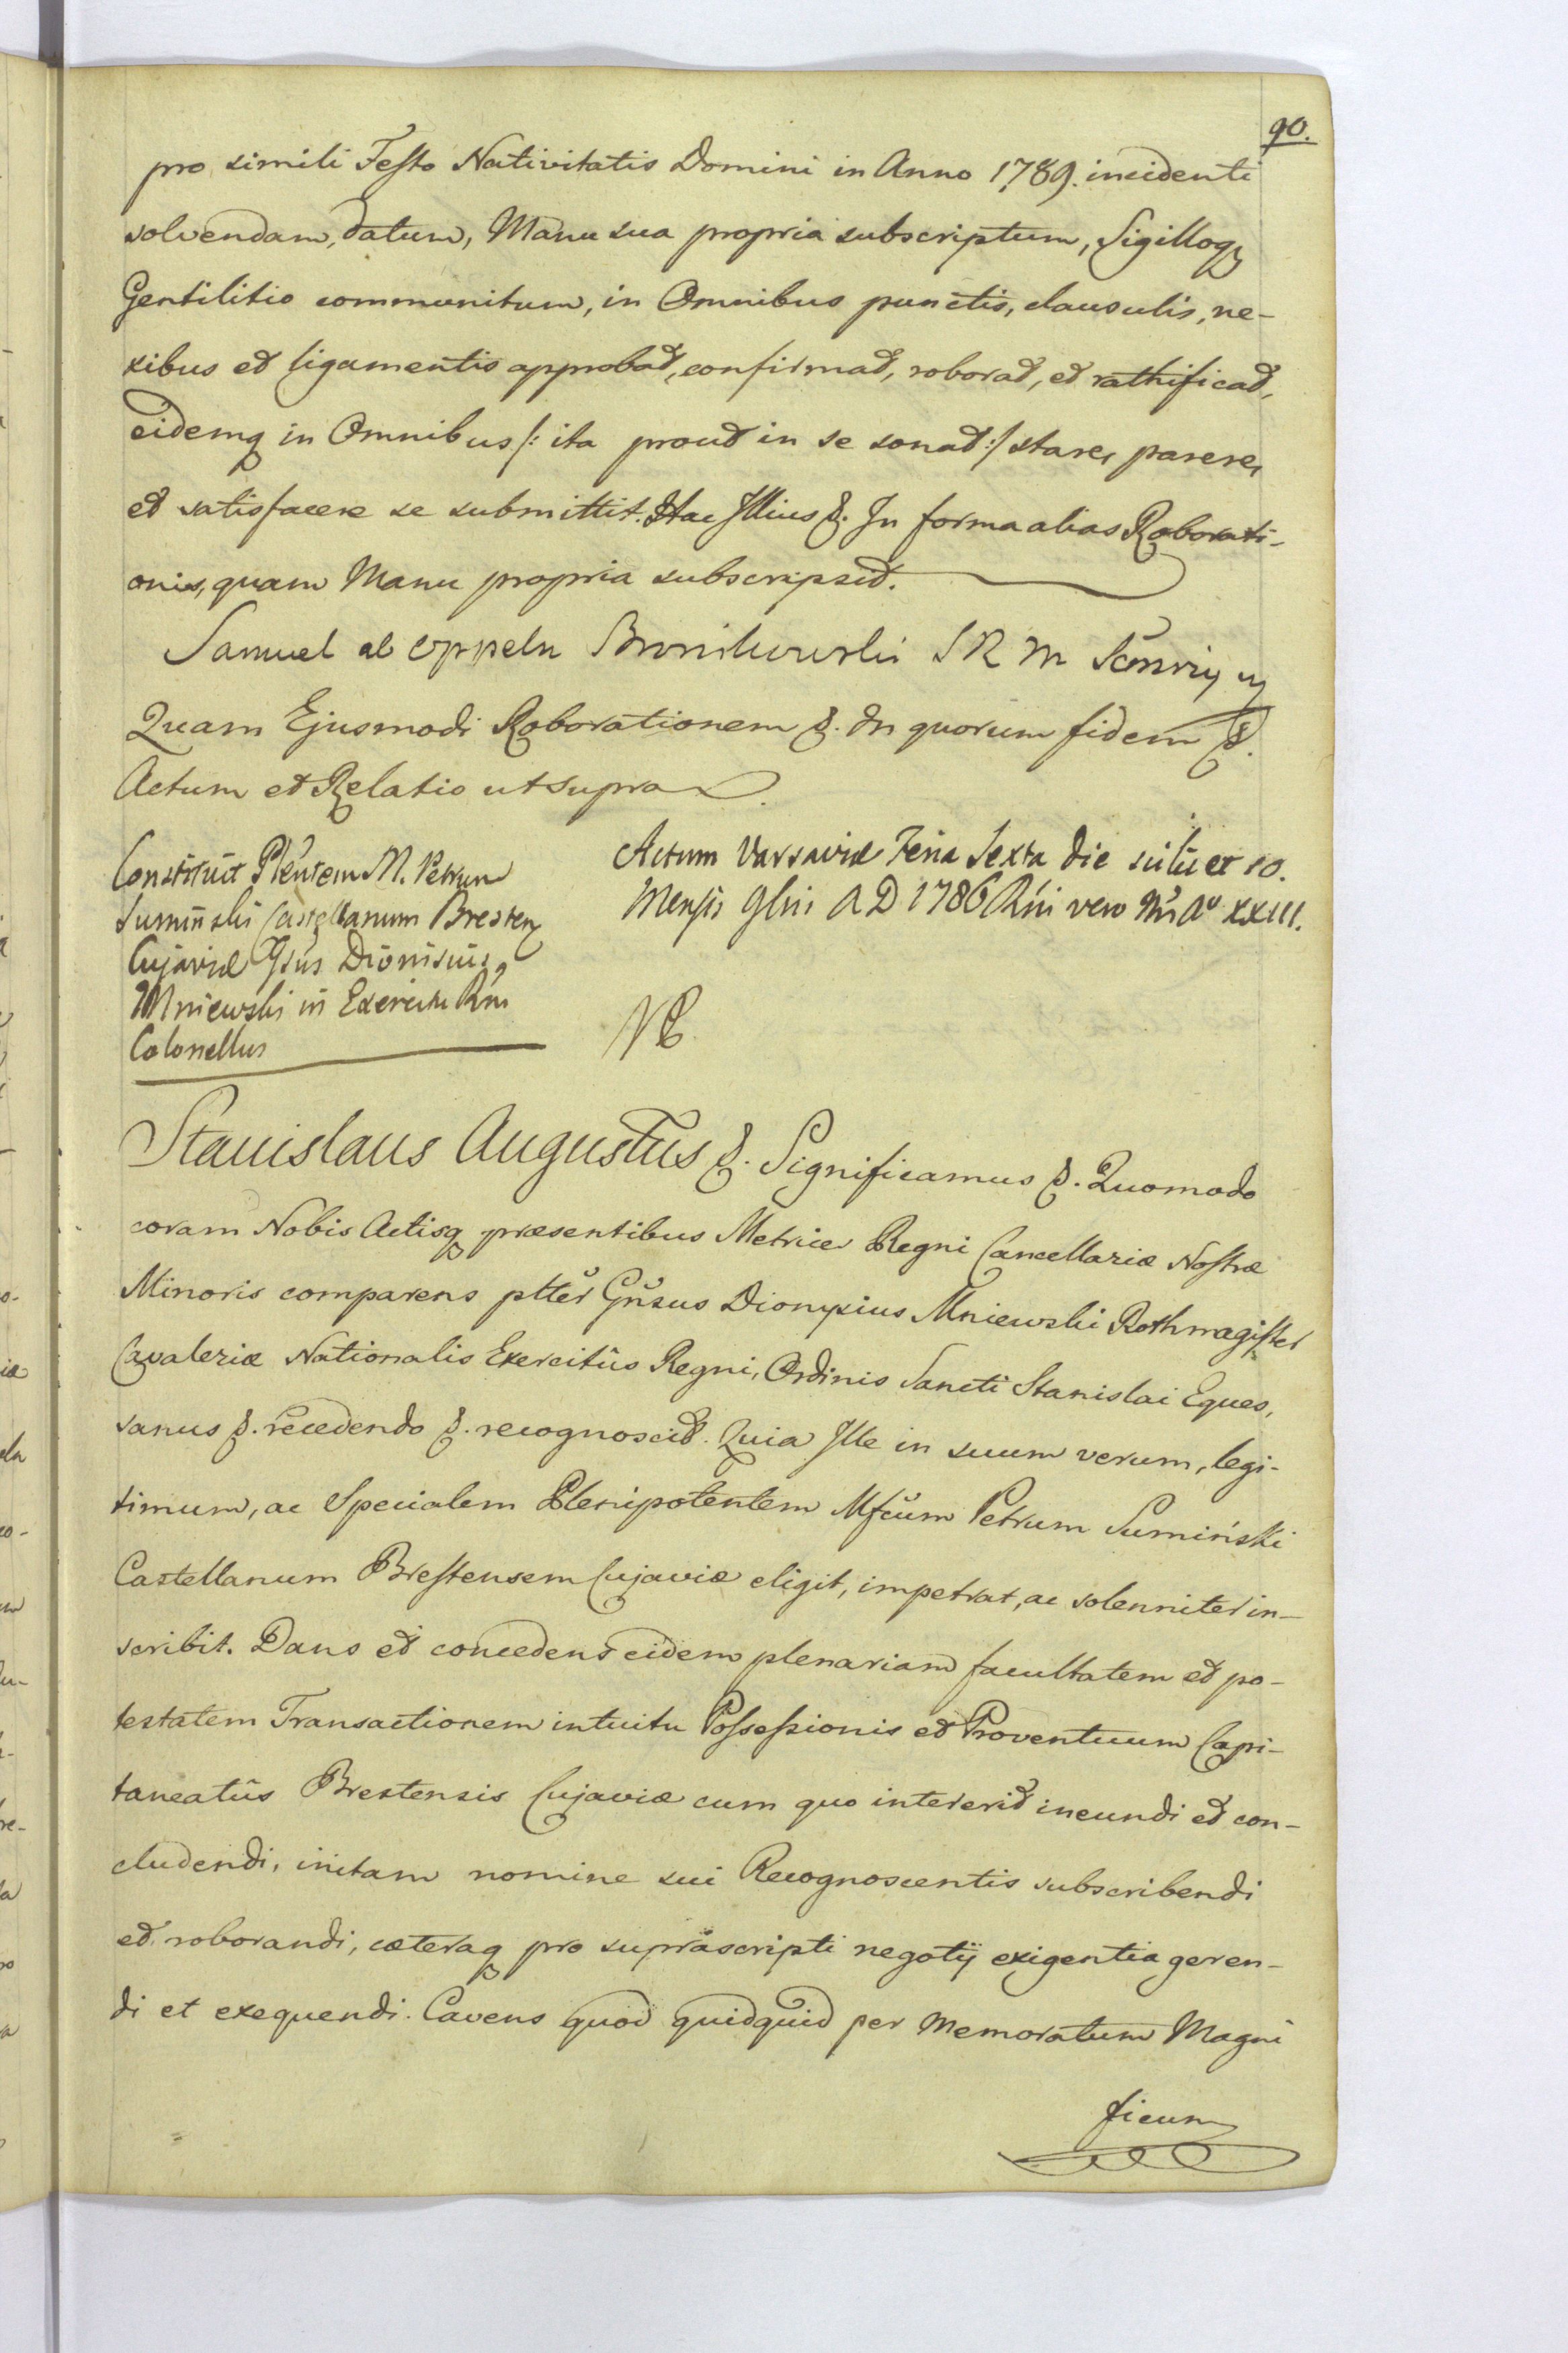 90.
pro simili Festo Nativitatis Domini in Anno 1789. incidenti
solvendam, datum, Manu sua propria subscriptum, Sigilloq
Gentilitio communitum, in Omnibus punctis, clausulis, ne-
xibus et ligamentis approbat, confirmat, roborat, et rathificat,
eidemq in Omnibus /: ita prout in se sonat :/ stare, parere,
et satisfacere se submittit. Hac Illius &. In forma alias Roborati-
onis, quam Manu propria subscripsit.
Samuel ab Oppeln Bronikowski S R M
Quam Ejusmodi Roborationem &. In quorum fidem &.
Actum et Relatio ut supra
Constituit Plentem M. Petrum
Sumiński Castellanum Bresten
Cujaviæ Gsus Dionisius
Mniewski in Exercitu Rni
Colonellus
Actum Varsaviæ Feria Sexta die scilicet 10.
Mensis 9bris A D 1786 Rni vero Nri Ao XXIII.
Stanislaus Augustus &. Significamus &. Quomodo
coram Nobis Actisq præsentibus Metrices Regni Cancellariæ Nostræ
Minoris comparens ptter Gnsus Dionysius Mniewski Rothmagister
Cavaleriæ Nationalis Exercitûs Regni, Ordinis Sancti Stanislai Eques,
sanus &. recedendo &. recognoscit. Quia Ille in suum verum, legi-
timum, ac Specialem Plenipotentem Mfcum Petrum Sumiński
Castellanum Brestensem Cujaviæ eligit, impetrat, ac solenniter in-
scribit. Dans et concedens eidem plenariam facultatem et po-
testatem Transactionem intuitu Possessionis et Proventuum Capi-
taneatûs Brestensis Cujaviæ cum quo intererit ineundi et con-
cludendi, initam nomine sui Recognoscentis subscribendi
et roborandi, cæteraq pro suprascripti negotij exigentia geren-
di et exequendi. Cavens quod quidquid per Memoratum Magni
ficum